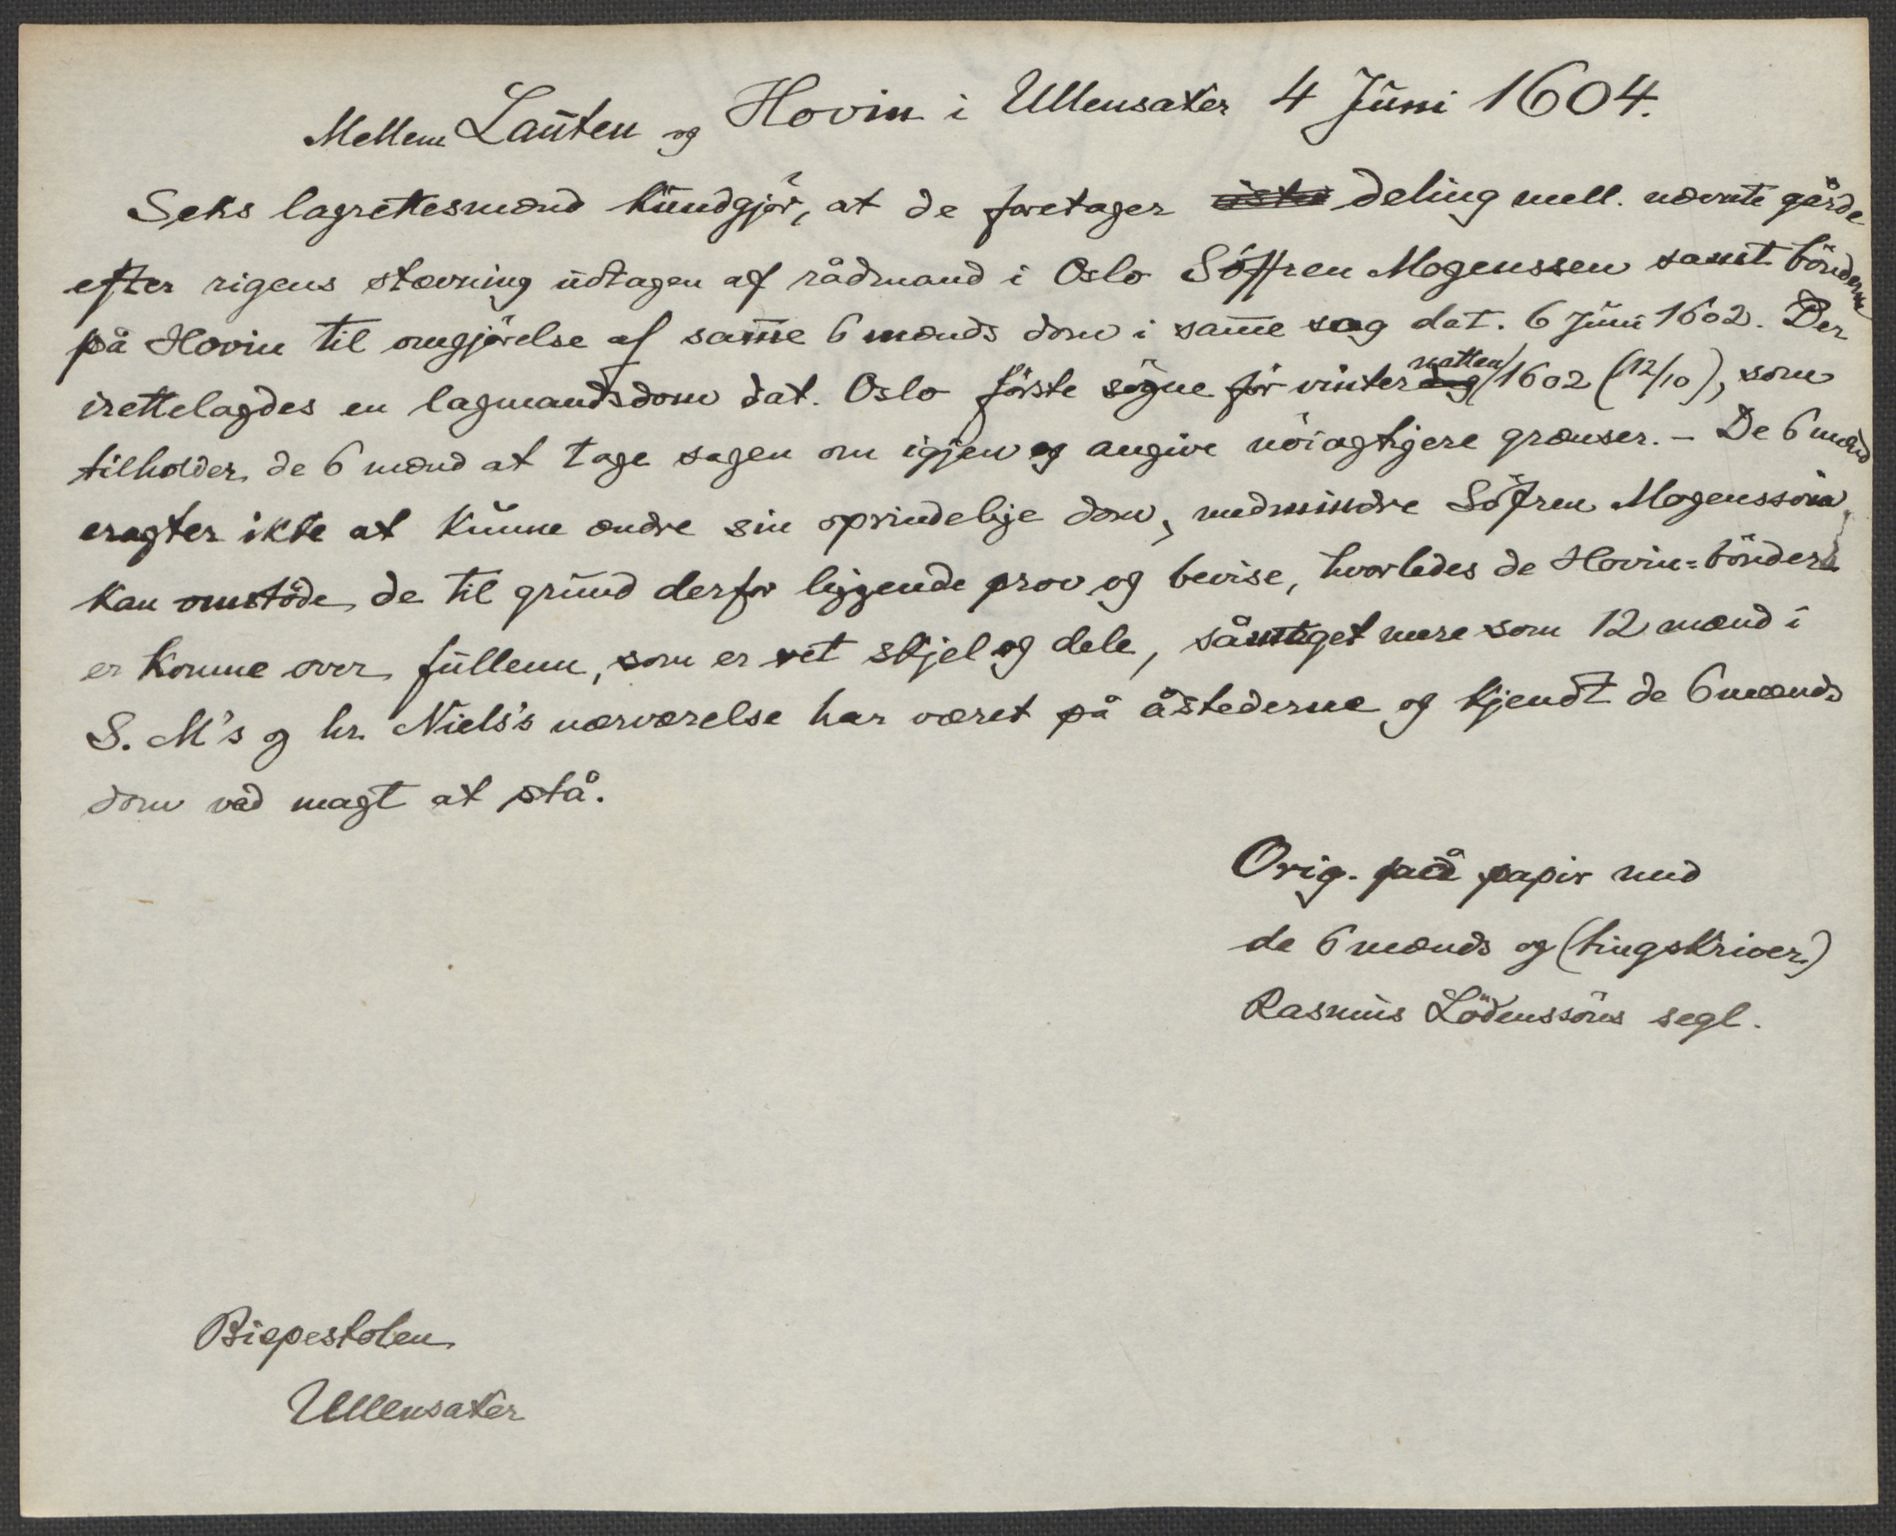 Mellem Lauten og Hovin i Ullensaker 4 Juni 1604.
Seks lagrettesmænd kundgjör, at de foretager deling mell. nævnte gårde
efter rigens stævning udtagen af rådmand i Oslo Söffren Mogenssen samt bönderne
på Hovin til omgjörelse af samme 6 mænds dom i samme sag dat. 6 Juni 1602. Der
irettelagdes en lagmandsdom dat. Oslo förste sögne för vinternatten 1602 (12/10), som
tilholder de 6 mænd at tage sagen om igjen og angive nöiagtigere grænser. - De 6 mænd
eragter ikte at kunne ændre sin oprindelige dom, medmindre Söfren Mogenssön
kan omstöde de til grund derfor liggende prov og bevise, hvorledes de Hovin=bönder
er komne over fullenn, som er ret skjel og dele, såmeget mere som 12 mænd i
S. M's og hr. Niels's nærværelse har været på åstederne og kjendt de 6 mænds
dom ved magt at stå.
Orig. på papir med
de 6 mænds og (tingskriver)
Rasmus Lödenssöns segl.
Bispestolen
Ullensaker